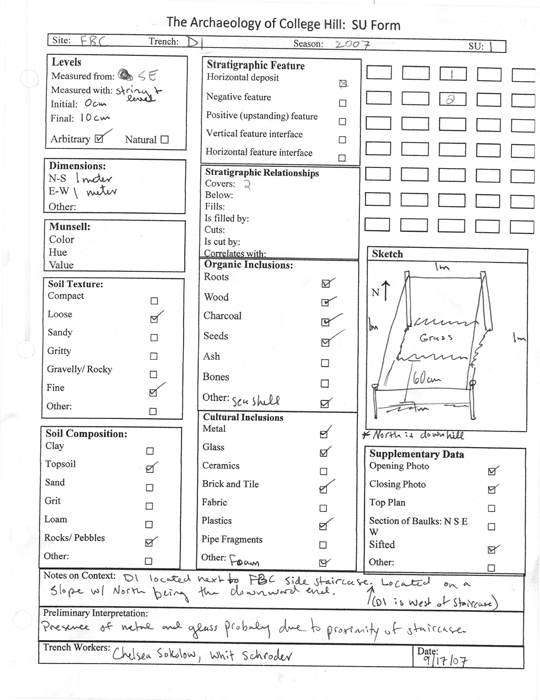 The Archaeology of College Hill: SU Form
Site: FBC Trench: D1 Season: 2007 SU: 1
Levels
Measured from: SE
Measured with: string + level
Initial: 0cm
Final: 10cm
Arbitrary Natural
Dimensions:
N-S 1 meter
E-W 1 meter
Other:
Munsell:
Color
Hue
Value
Soil Texture:
Compact
Loose
Sandy
Gritty
Gravelly/ Rocky
Fine
Other:
Soil Composition:
Clay
Topsoil
Sand
Grit
Loam
Rocks/ Pebbles
Other:
Stratigraphic Feature
Horizontal deposit
Negative feature
Positive (upstanding) feature
Vertical feature interface
Horizontal feature interface
Stratigraphic Relationships
Covers: 2
Below:
Fills:
Is filled by:
Cuts:
Is cut by:
Correlates with:
Organic Inclusions:
Roots
Wood
Charcoal
Seeds
Ash
Bones
Other: sea shell
Cultural Inclusions
Metal
Glass
Ceramics
Brick and Tile
Fabric
Plastics
Pipe Fragments
Other: Foam
1
2
Sketch
1m
N
1m
Grass
1m
60cm
* North is downhill
Supplementary Data
Opening Photo
Closing Photo
Top Plan
Section of Baulks: N S E
W
Sifted
Other:
Notes on Context: D1 located next to FBC side staircase. Located on a
slope w/ North being the downward end. (D1 is west of staircase)
Preliminary Interpretation:
Presence of metal and glass probaly due to proximity of staircase.
Trench Workers: Chelsea Sokolow, Whit Schroder
Date:
9/17/07